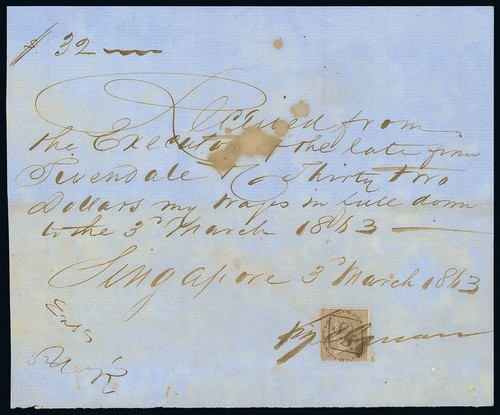 $. 32
Received from
the Executors of the late firm
Tivendale & Co Thirty two
Dollars my wages in full down
to the 3d March 1863
Singapore 3d March 1863